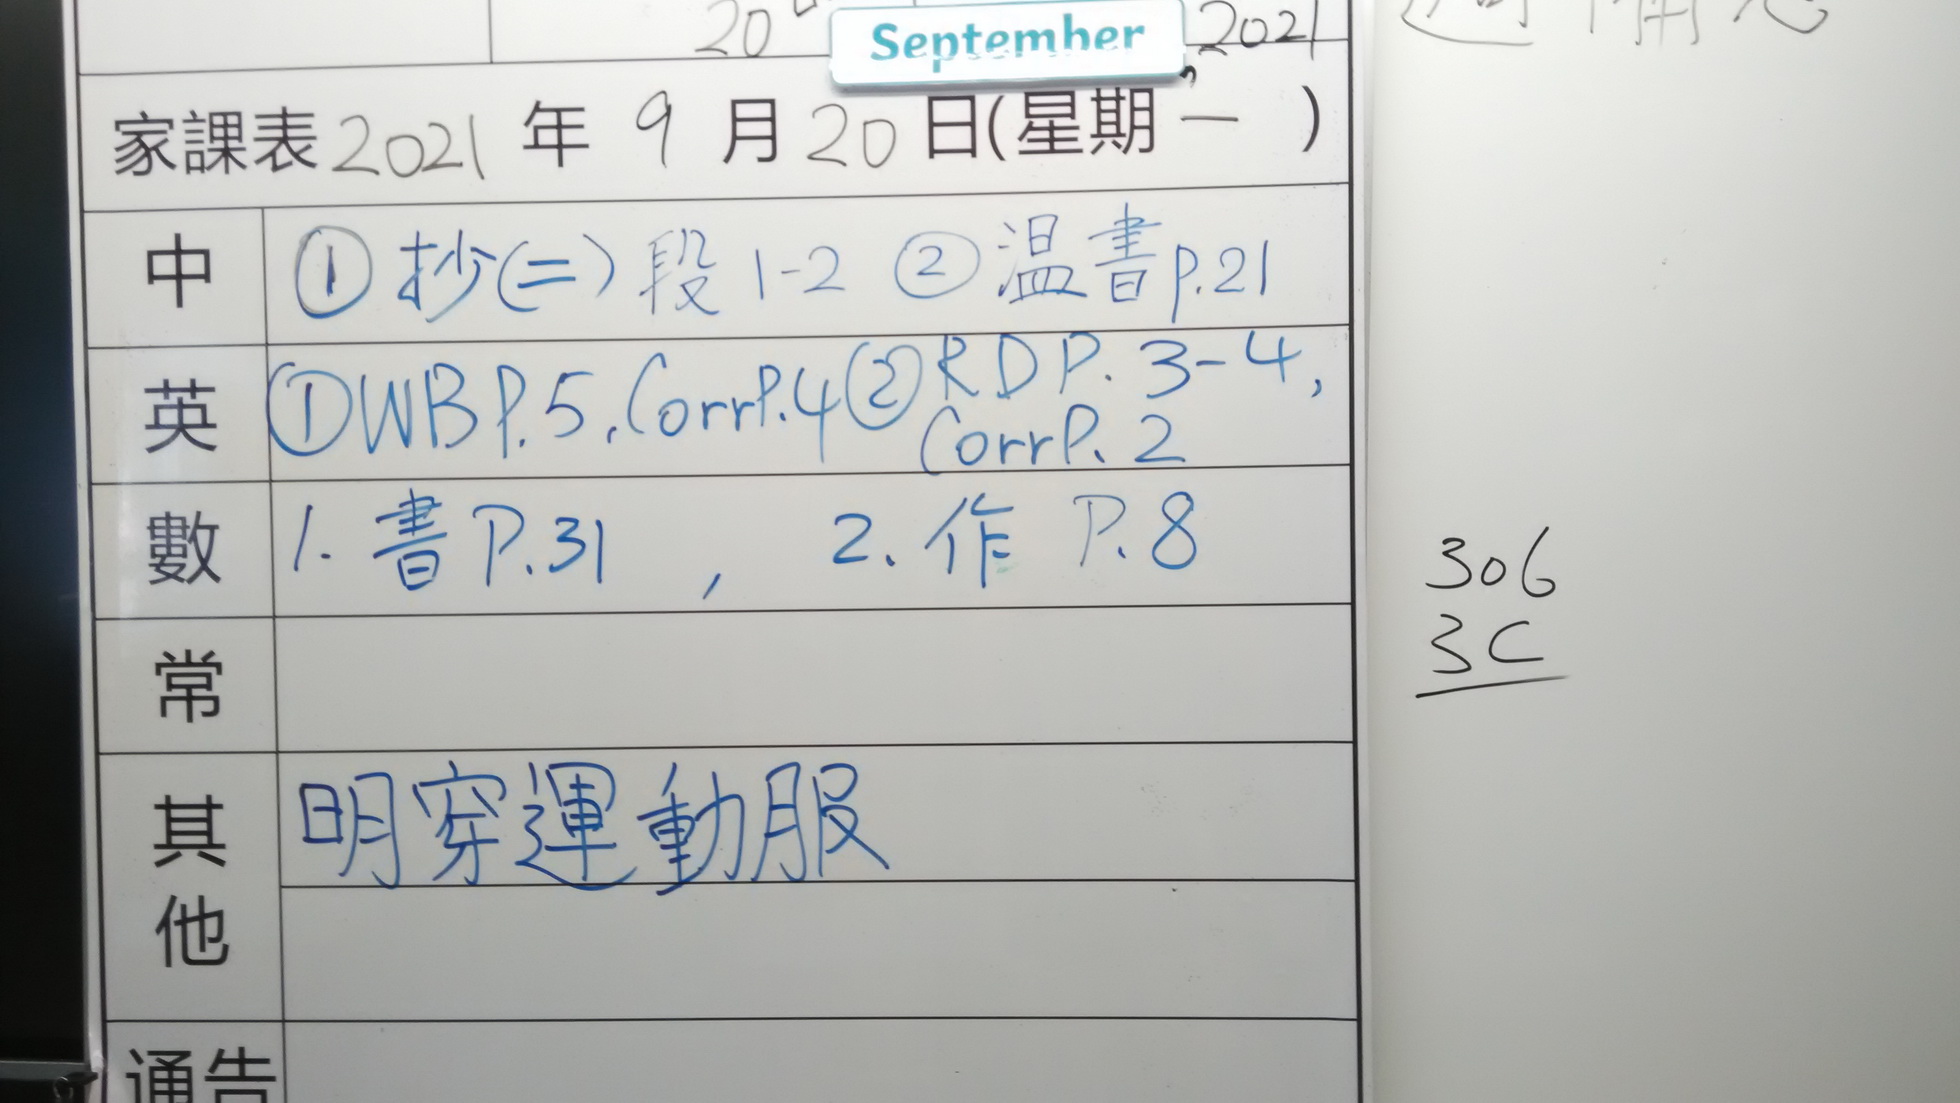 20th September 2021
家課表 2021 年 9 月 20 日(星期一)
中 ① 抄(二) 段 1-2 ② 温書 p.21
英 ① WB P.5, Corr P.4 ② RD P. 3-4,
Corr P. 2
數 1. 書 P.31 , 2. 作 P.8
常
其他 明穿運動服
通告
306
3C